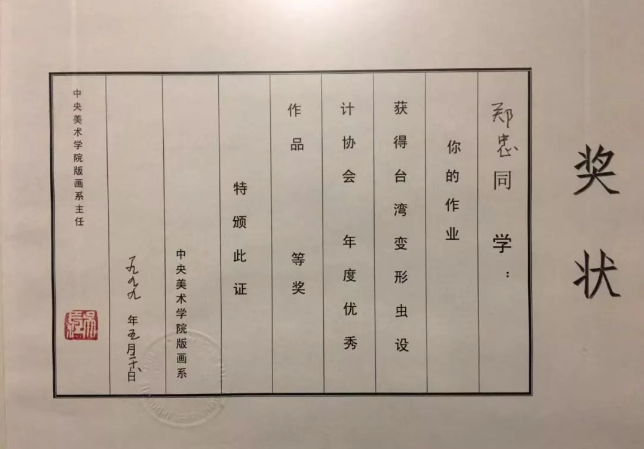 奖状
郑忠同学：
你的作业
获得台湾变形虫设
计协会 年度优秀
作品 等奖
特颁此证
中央美术学院版画系
一九九九年五月二十八日
中央美术学院版画系主任